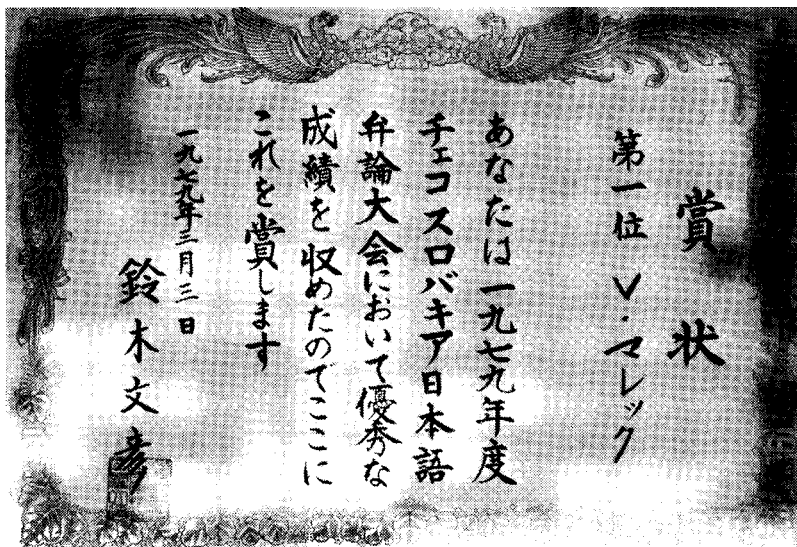 賞状
第一位 V・マレック
あなたは一九七九年度
チェコスロバキア日本語
弁論大会において優秀な
成績を収めたのでここに
これを賞します
一九七九年三月三日
鈴木文彦